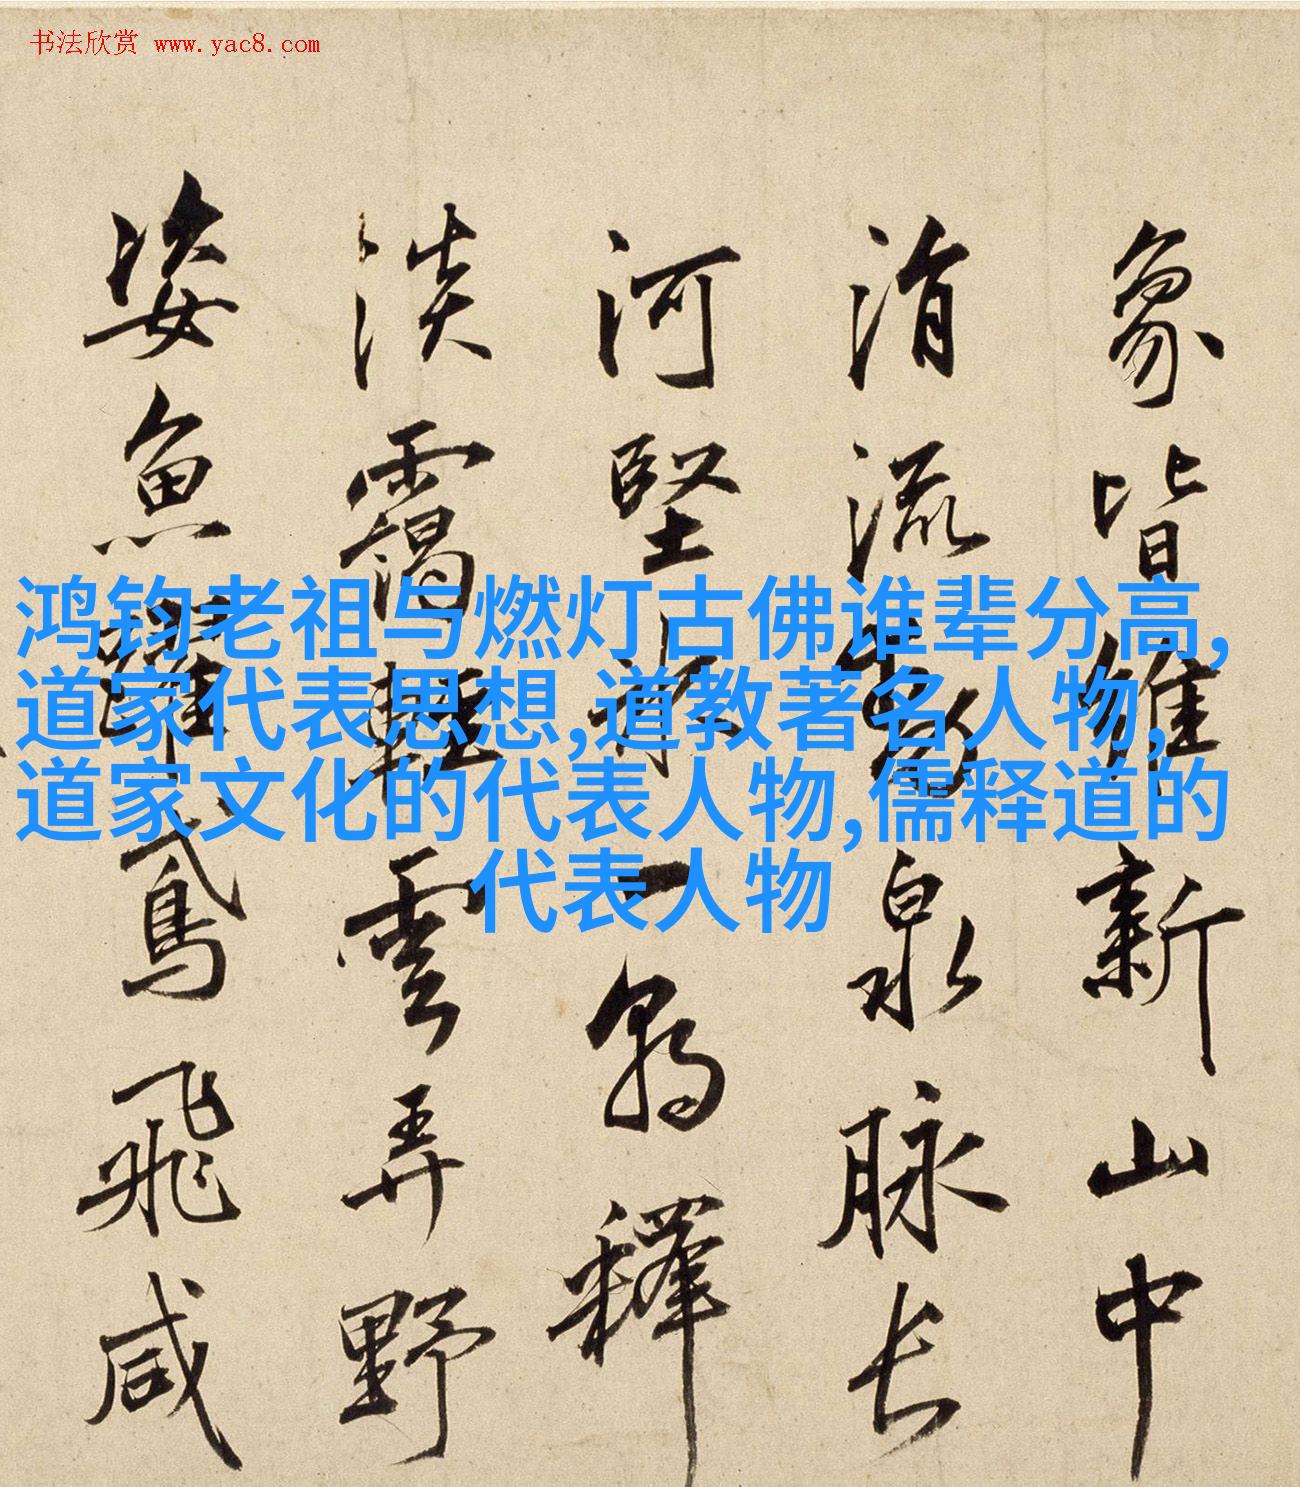 书法欣赏 www.yac8.com
象皆維新山中
涓流動泉脉长
河堅冰一朝釋
淡靄輕雲弄野
姿魚躍鳶飛咸
鸿钧老祖与燃灯古佛谁辈分高,
道家代表思想,道教著名人物,
道家文化的代表人物,儒释道的
代表人物